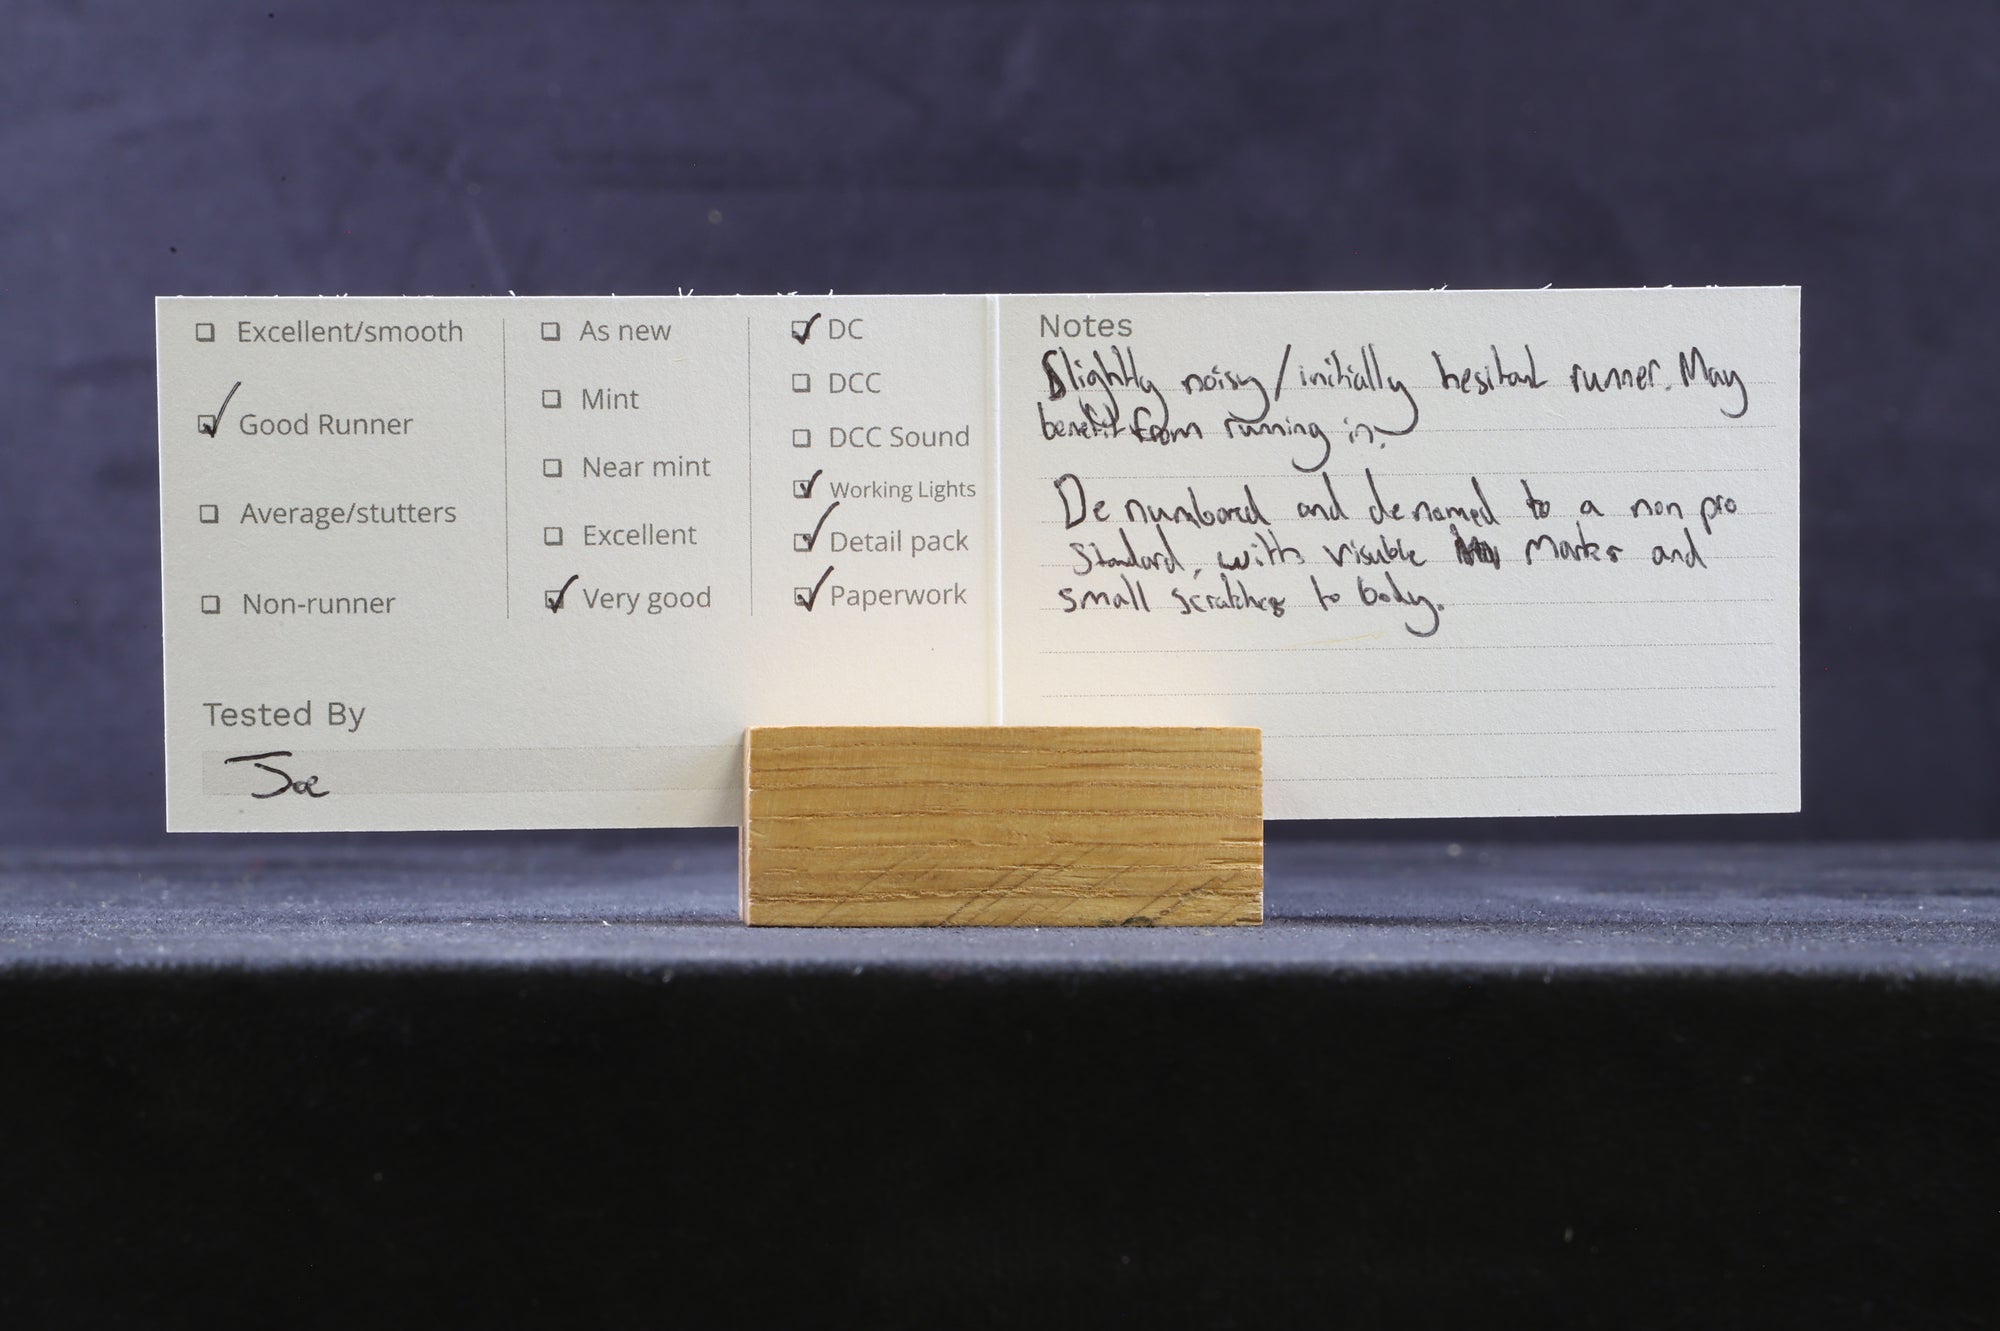 Excellent/smooth
Good Runner
Average/stutters
Non-runner
As new
Mint
Near mint
Excellent
Very good
DC
DCC
DCC Sound
Working Lights
Detail pack
Paperwork
Tested By
Joe
Notes
Slightly noisy/initially hesitant runner. May
benefit from running in.
De numbered and denamed to a non pro
standard, with visible marks and
small scratches to body.